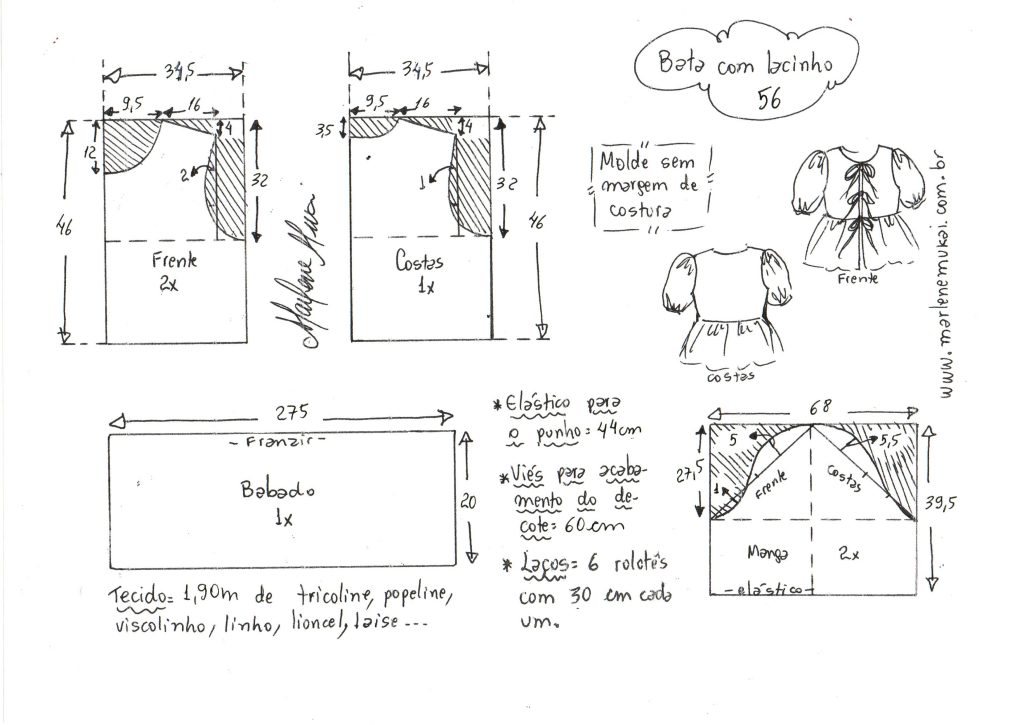 Bata com lacinho
56
34,5
9,5
16
4
12
2
32
46
Frente
2x
34,5
9,5
16
35
4
1
32
46
Costas
1x
Molde sem
margem de
costura
Frente
costas
www.marlenemukai.com.br
275
- Franzir -
Babado
1x
20
Tecido= 1,90m de tricoline, popeline,
viscolinho, linho, lioncel, laise ...
* Elástico para
o punho= 44cm
* Viés para acaba-
mento do de-
cote= 60cm
* Laços= 6 rolotês
com 30 cm cada
um.
68
5
5,5
27,5
1
Frente
Costas
39,5
Manga
2x
- elástico -